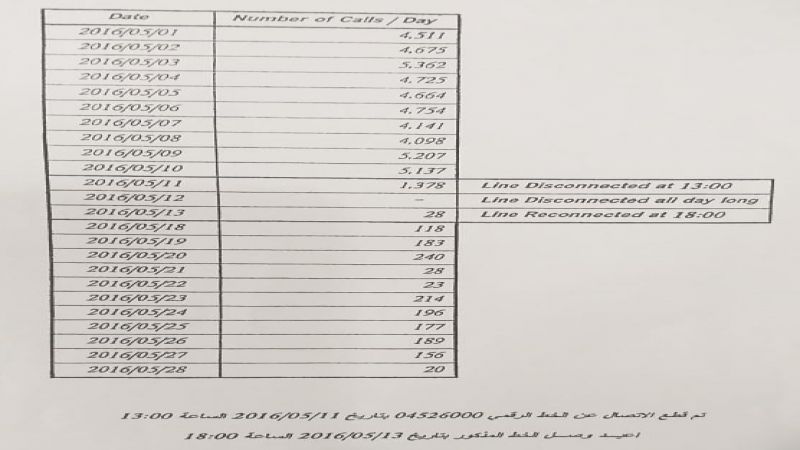 Date Number of Calls / Day
2016/05/01 4,511
2016/05/02 4,675
2016/05/03 5,362
2016/05/04 4,725
2016/05/05 4,664
2016/05/06 4,754
2016/05/07 4,141
2016/05/08 4,098
2016/05/09 5,207
2016/05/10 5,137
2016/05/11 1,378 Line Disconnected at 13:00
2016/05/12 - Line Disconnected all day long
2016/05/13 28 Line Reconnected at 18:00
2016/05/18 118
2016/05/19 183
2016/05/20 240
2016/05/21 28
2016/05/22 23
2016/05/23 214
2016/05/24 196
2016/05/25 177
2016/05/26 189
2016/05/27 156
2016/05/28 20
تم قطع الاتصال عن الخط الرقمي 04526000 بتاريخ 2016/05/11 الساعة 13:00
اعيد وصل الخط المذكور بتاريخ 2016/05/13 الساعة 18:00